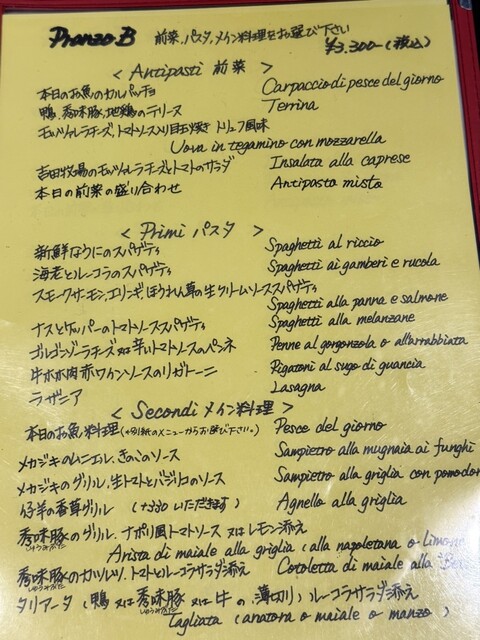 Pranzo B 前菜、パスタ、メイン料理をお選び下さい
¥3,300-(税込)
< Antipasti 前菜 >
本日のお魚のカルパッチョ Carpaccio di pesce del giorno
鴨、秀味豚、地鶏のテリーヌ Terrina
モッツァレラチーズ、トマトソース入り目玉焼き トリュフ風味
Uova in tegamino con mozzarella
吉田牧場のモッツァレラチーズとトマトのサラダ Insalata alla caprese
本日の前菜の盛り合わせ Antipasto misto
< Primi パスタ >
新鮮なうにのスパゲティ Spaghetti al riccio
海老とルーコラのスパゲティ Spaghetti ai gamberi e rucola
スモークサーモン、エリンギ、ほうれん草の生クリームソーススパゲティ
Spaghetti alla panna e salmone
ナスとケッパーのトマトソーススパゲティ Spaghetti alla melanzane
ゴルゴンゾーラチーズ又は辛いトマトソースのペンネ Penne al gorgonzola o all'arrabbiata
牛ホホ肉赤ワインソースのリガトーニ Rigatoni al sugo di guancia
ラザニア Lasagna
< Secondi メイン料理 >
本日のお魚料理(別紙のメニューからお選び下さい。) Pesce del giorno
メカジキのムニエル、きのこのソース Sampietro alla mugnaia ai funghi
メカジキのグリル、生トマトとバジリコのソース Sampietro alla griglia con pomodor
仔羊の香草グリル (+330 いただきます) Agnello alla griglia
秀味豚のグリル、ナポリ風トマトソース 又はレモン添え
しゅうみぶた
Arista di maiale alla griglia (alla napoletana o limone
秀味豚のカツレツ、トマトとルーコラサラダ添え Cotoletta di maiale alla
しゅうみぶた
タリアータ (鴨 又は 秀味豚 又は 牛 の 薄切り) ルーコラサラダ添え
しゅうみぶた
Tagliata (anatora o maiale o manzo)